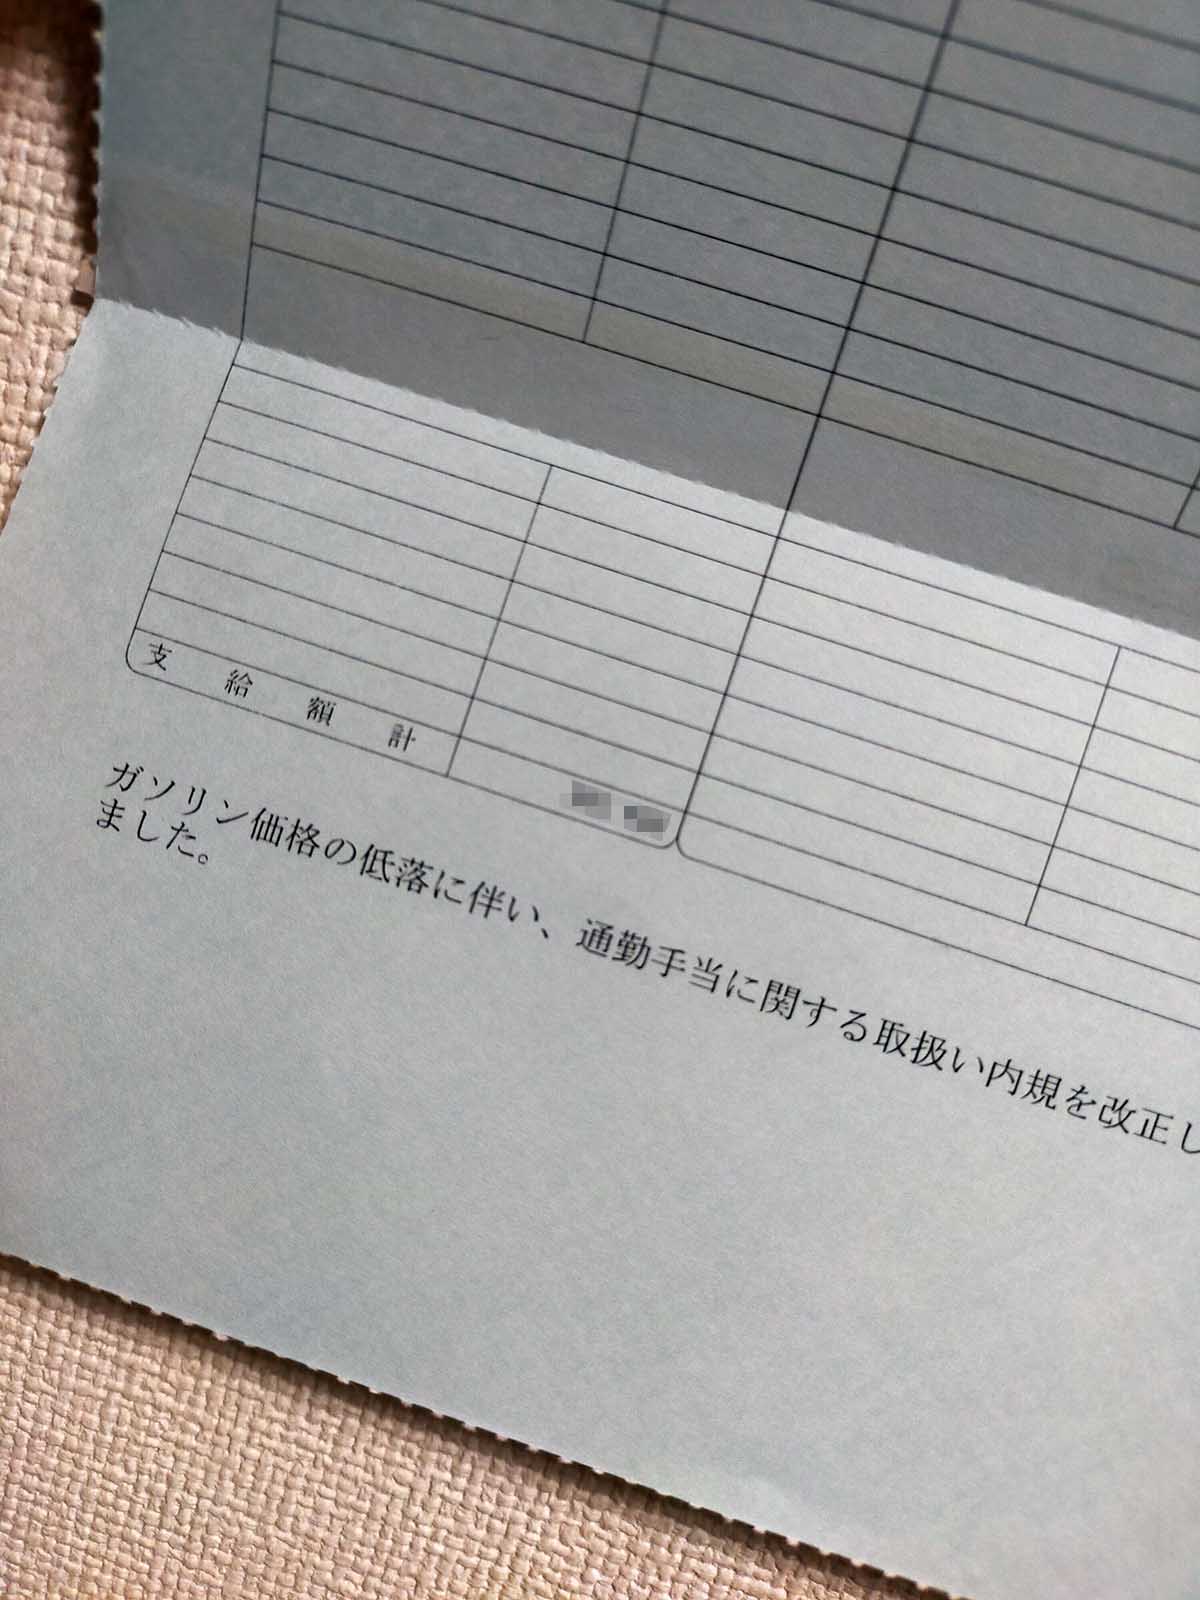 支給額計
ガソリン価格の低落に伴い、通勤手当に関する取扱い内規を改正し
ました。